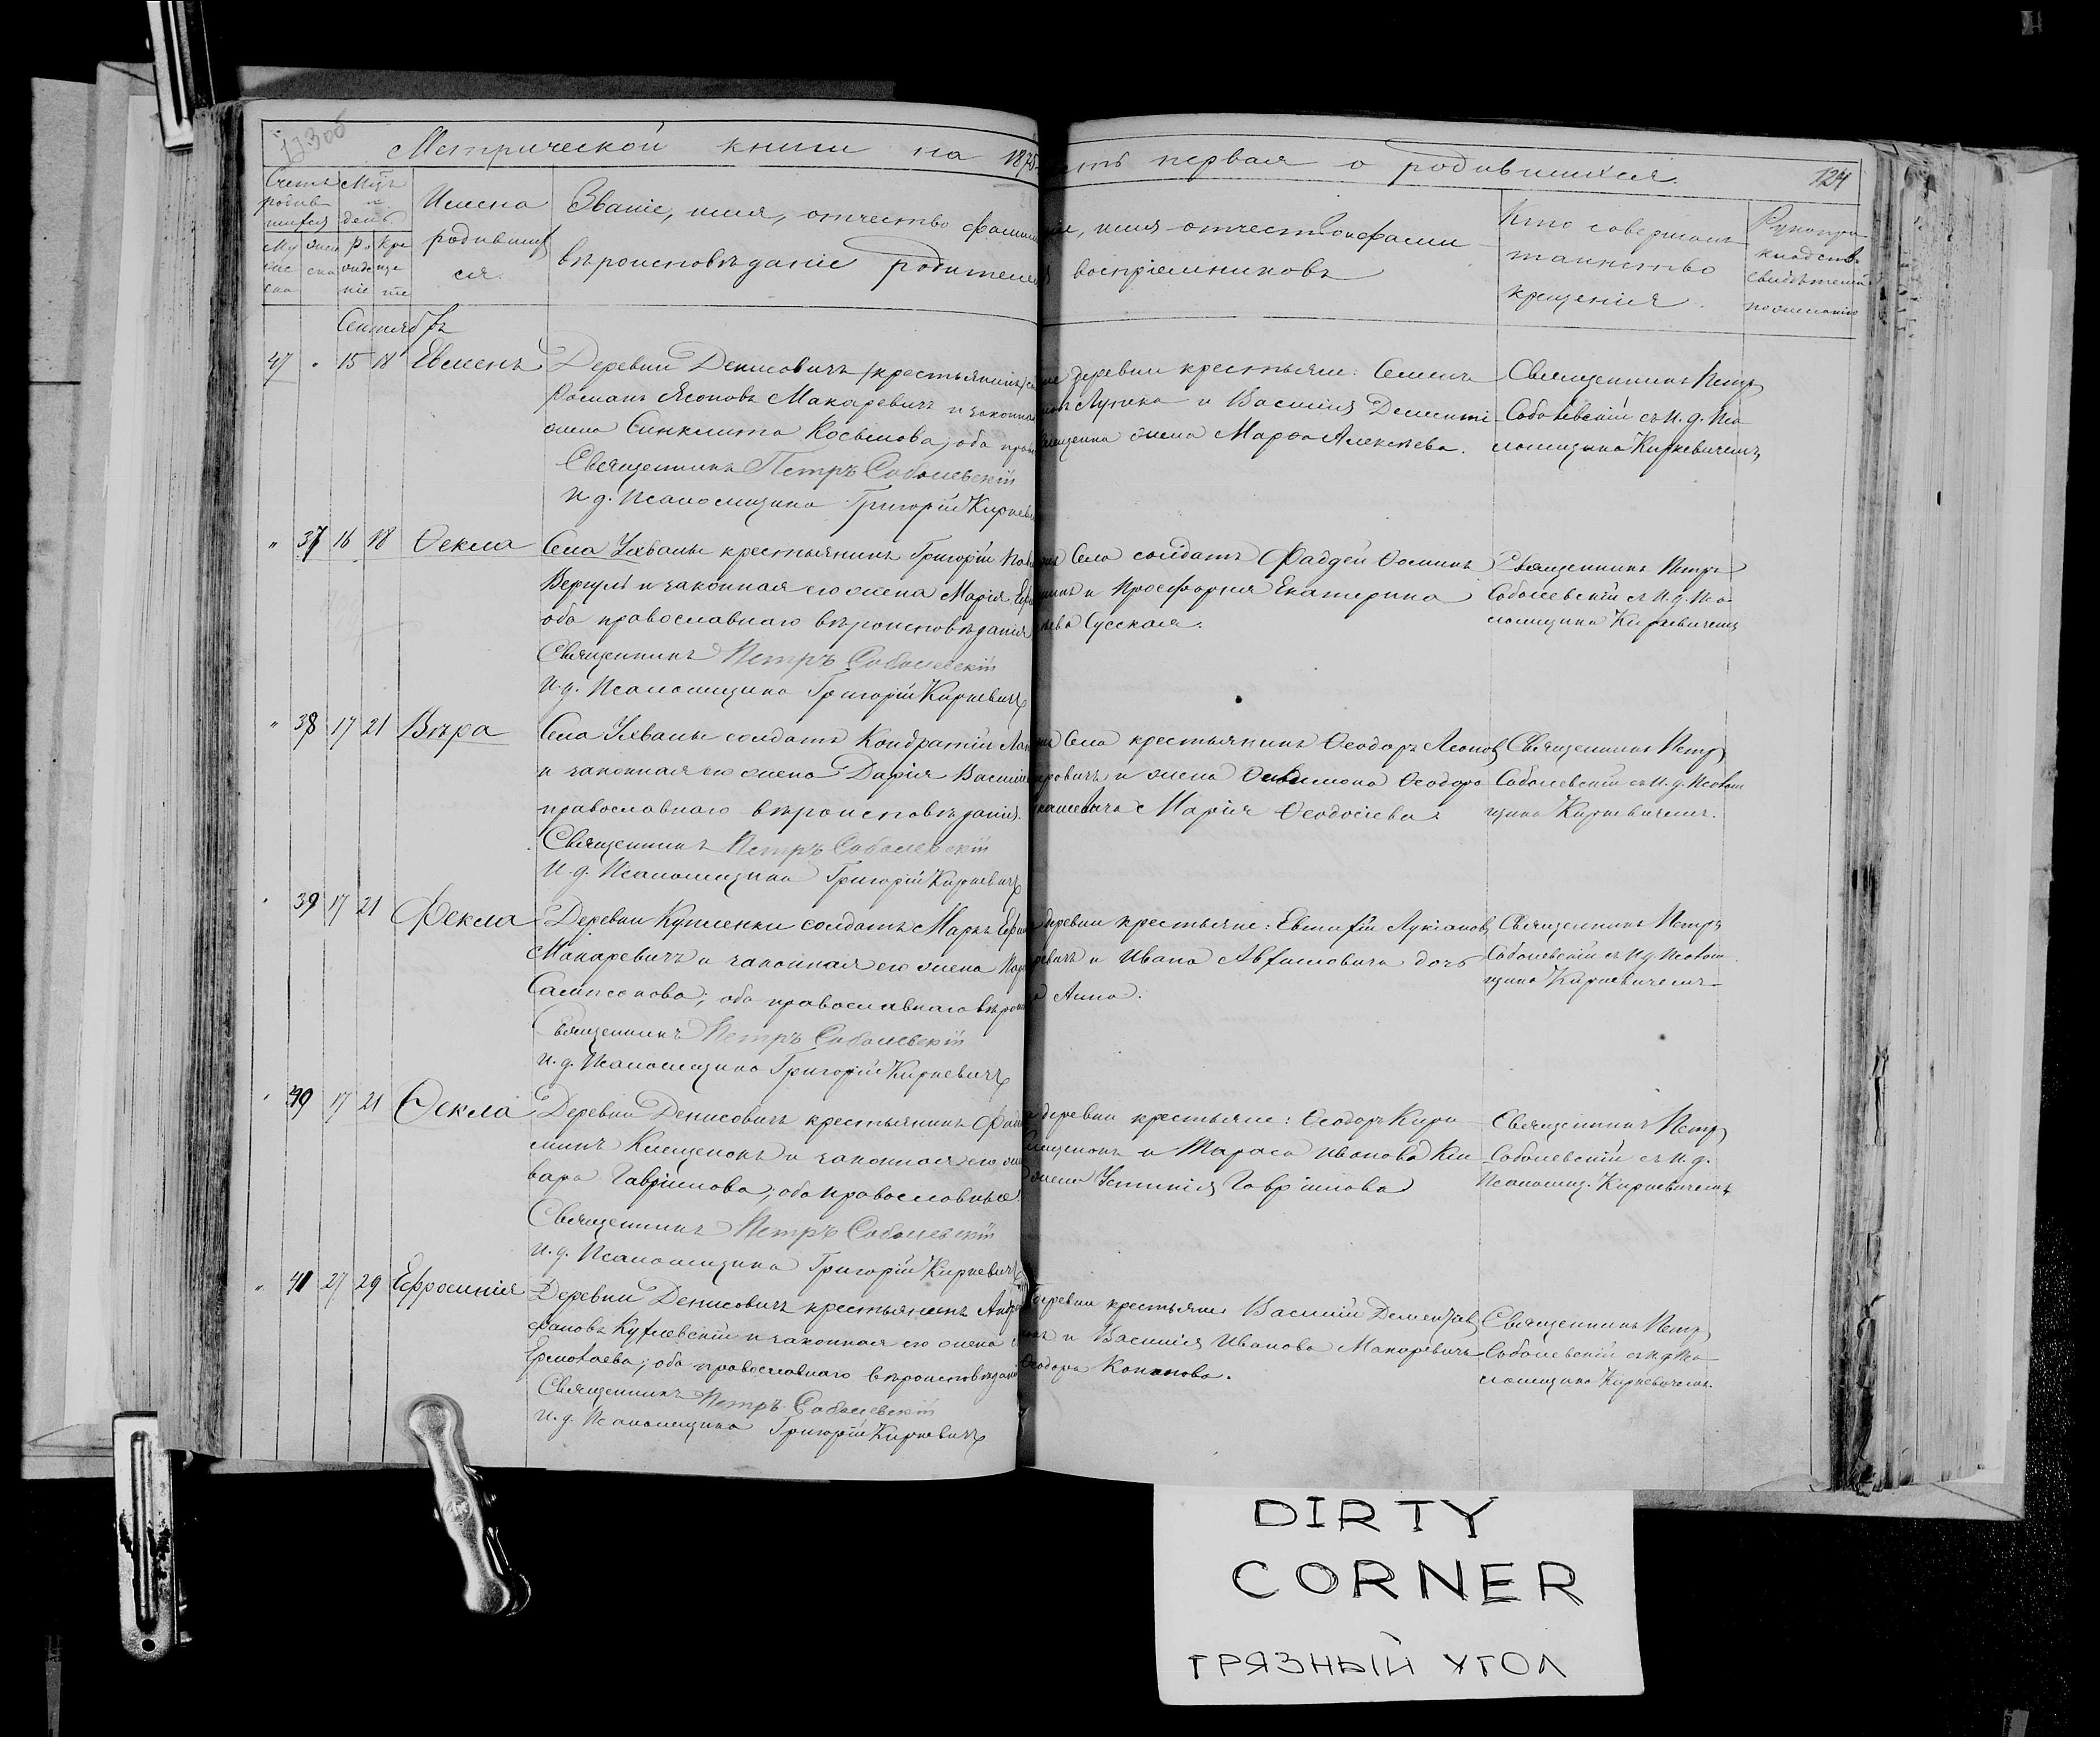 Метрической книги на 1875
сть первая о родившихся.
124
Счетъ родив шихся
Мцъ и день
Имена родившихся.
Званіе, имя, отчество фамил
вѣроисповѣданіе родителей
іе, имя отчество и фами
воспріемниковъ
Кто совершалъ
таинство
крещенія.
Рукопри
кладств.
свидѣтелей
по желанію
Му жес ка
Жен ска
Ро жде ніе
Кре ще ніе
Сентябрь
47 " 15 18 Евменъ
Деревни Денисовичъ крестьянинъ
Романъ Ясоновъ Макаревичъ и законная
жена Синклита Косьмова; оба прав
Священникъ Петръ Соболевскій
И д. Псаломщика Григорій Киркевичъ
деревни крестьяне: Семенъ
и Василія Дементі
жена Марѳа Алексѣева.
Священникъ Петръ
Соболевскій съ И. д. Пса
ломщика Киркевичемъ
" 37 16 18 Ѳекла
Села Ухвалы крестьянинъ Григорій
и законная его жена Марія
оба православнаго вѣроисповѣданія
Священникъ Петръ Соболевскій
И. д. Псаломщика Григорій Киркевичъ
Села солдатъ Фаддей Ѳоминъ
и Просфорня Екатерина
Сусская.
Священникъ Петръ
Соболевскій съ И. д. Пса
ломщика Киркевичемъ
" 38 17 21 Вѣра
Села Ухвалы солдатъ Кондратій
и законная его жена Дарія Васил
православнаго вѣроисповѣданія.
Священникъ Петръ Соболевскій
И. д. Псаломщика Григорій Киркевичъ
Села крестьянинъ Ѳеодоръ Леонов
и жена Ѳеодоро
Марія Ѳеодосіева.
Священникъ Петръ
Соболевскій съ И. д. Псалом
щика Киркевичемъ.
" 39 17 21 Фекла
Деревни Купленки солдатъ Маркъ
Макаревичъ и законная его жена
Сампсонова; оба православнаго вѣроис
Священникъ Петръ Соболевскій
И. д. Псаломщика Григорій Киркевичъ
деревни крестьяне: Евтифій Лукіановъ
и Ивана дочь
Анна.
Священникъ Петръ
Соболевскій съ И д. Псалом
щика Киркевичемъ
" 40 17 21 Ѳекла
Деревни Денисовичъ крестьянинъ
минъ Клещенокъ и законная его же
вара Гаврилова; оба православные
Священникъ Петръ Соболевскій
И. д. Псаломщика Григорій Киркевичъ
деревни крестьяне: Ѳеодоръ Кири
и Тараса Иванова Кле
жена Устинія Гаврилова
Священникъ Петръ
Соболевскій съ И. д.
Псаломщ. Киркевичемъ
" 41 27 29 Ефросинія
Деревни Денисовичъ крестьянинъ
фановъ и законная его жена
Ермолаева; оба православнаго вѣроисповѣдані
Священникъ Петръ Соболевскій
И. д. Псаломщика Григорій Киркевичъ
деревни крестьяне Василій Дементіев
и Василія Иванова Макаревича
Ѳеодора Кононова.
Священникъ Петръ
Соболевскій съ И. д. Пса
ломщика Киркевичемъ.
DIRTY
CORNER
ГРЯЗНЫЙ УГОЛ